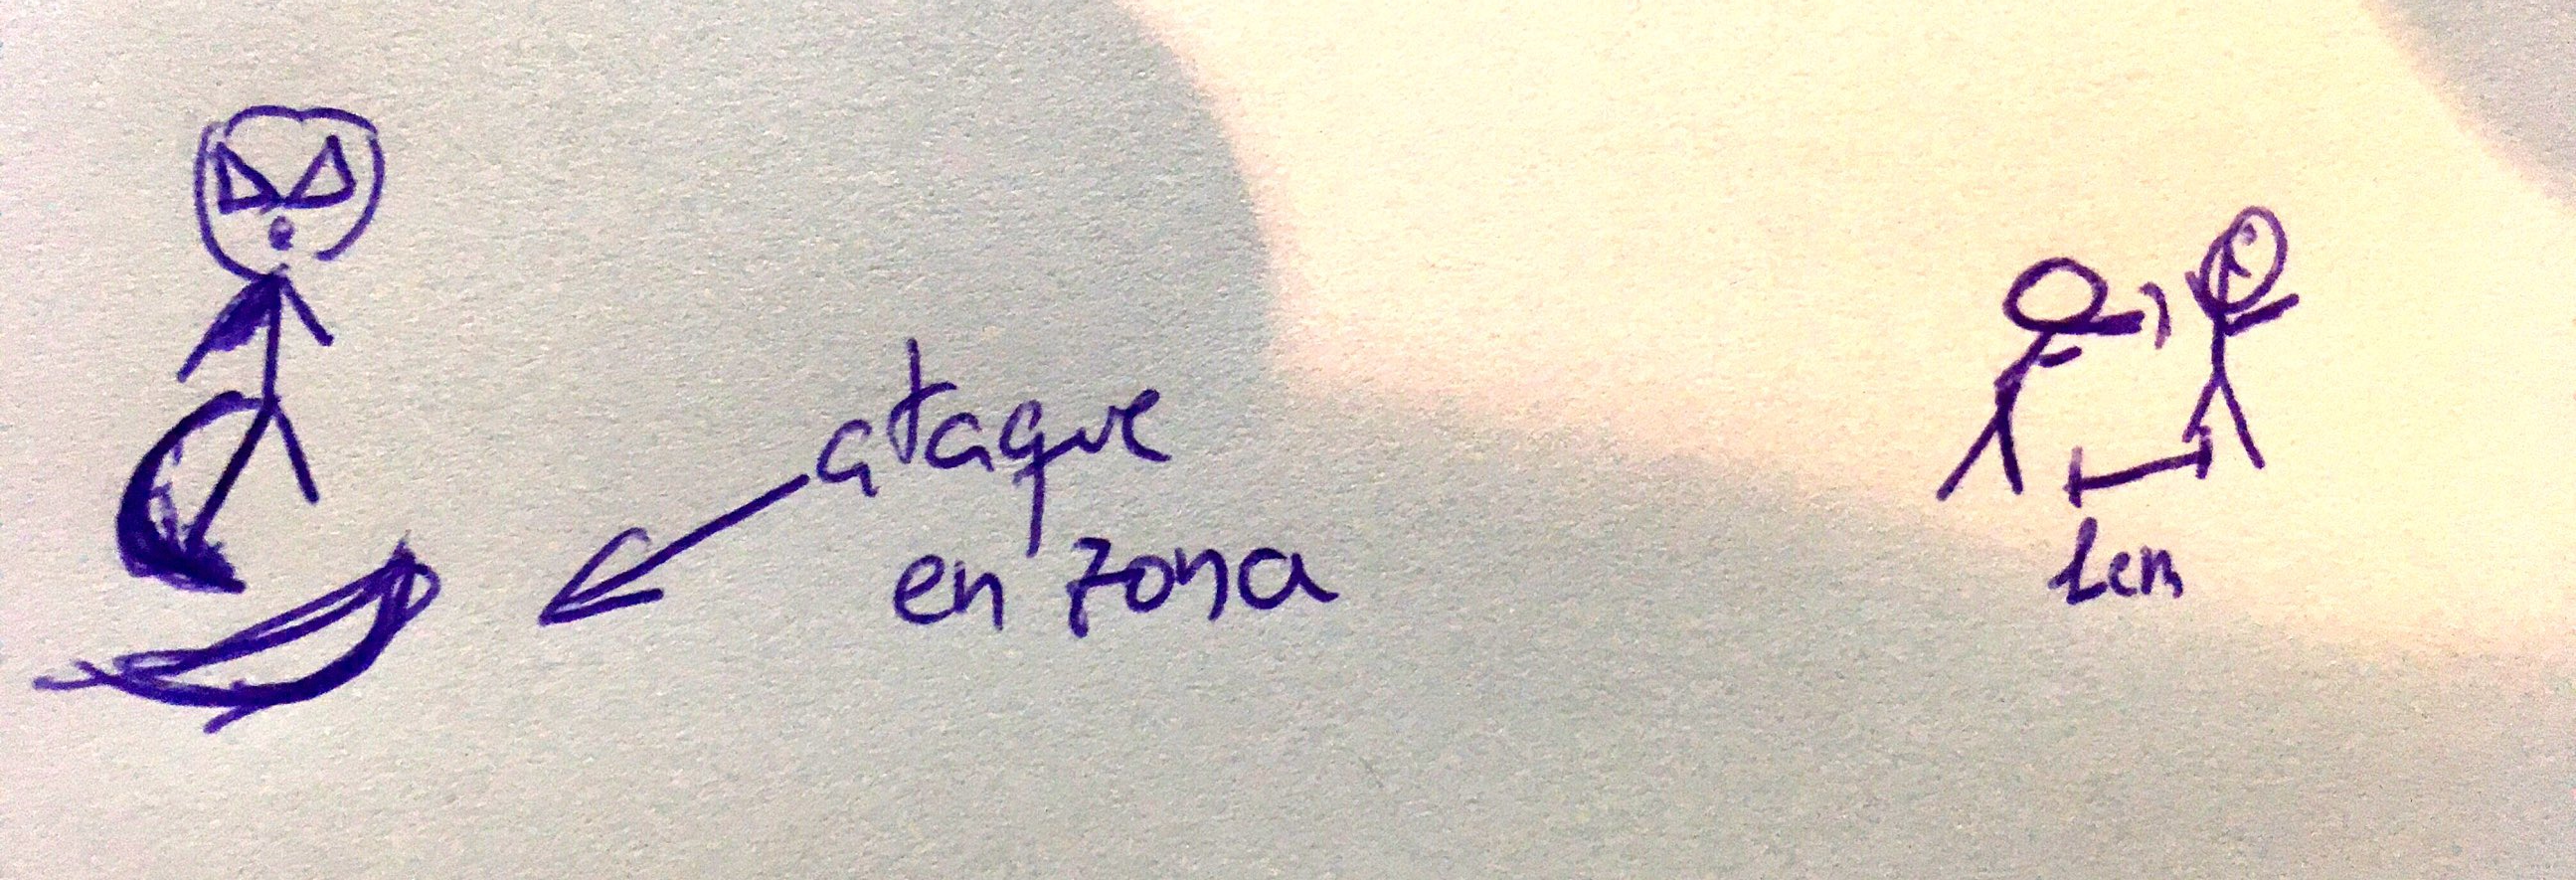 ataque
en zona
1cm